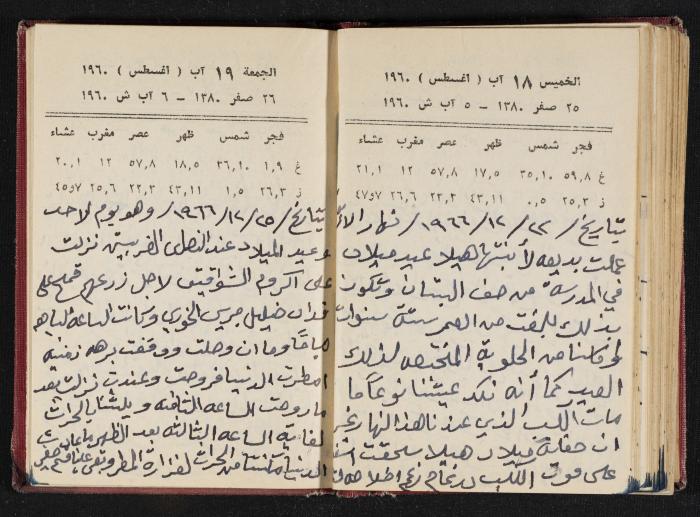 الخميس ١٨ آب ( اغسطس ) ١٩٦٠
٢٥ صفر ١٣٨٠ – ٥ آب ش ١٩٦٠
فجر شمس ظهر عصر مغرب عشاء
غ ٥٩,٨ ٣٥,١٠ ١٧,٥ ٥٧,٨ ١٢ ٢١,١
ز ٢٥,٣ ٠,٥ ٤٣,١١ ٢٣,٣ ٢٦,٦ ٤٧و٧
بتاريخ / ٢٢ / ١٢ / ١٩٦٦ / نهار
عملت بديعه لأبنتها هيلا عيد ميلاد
في المدرسة من صف البستان وتكون
بذلك بلغت من العمر ستة سنوات
من الحلوية المختصه لذلك
العيد كما أنه نكد عيشنا نوعاً ما
مات الكلب الذي عندنا هذا النهار
ان حفلة ميلاد هيلا سحقت
على موت الكلب
الجمعة ١٩ آب ( اغسطس ) ١٩٦٠
٢٦ صفر ١٣٨٠ – ٦ آب ش ١٩٦٠
فجر شمس ظهر عصر مغرب عشاء
غ ١,٩ ٣٦,١٠ ١٨,٥ ٥٧,٨ ١٢ ٢٠,١
ز ٢٦,٣ ١,٥ ٤٣,١١ ٢٢,٣ ٢٥,٦ ٤٥و٧
بتاريخ / ٢٥ / ١٢ / ١٩٦٦ / وهو يوم لاحد
وعيد الميلاد عند النصارى الغربيين نزلت
على اكروم الشواقيق لاجل زرعهم قمح على
فدان خليل جريس الخوري وكانت الساعه
صباحاً وما ان وصلت ووقفت برهه زمنيه
امطرت الدنيا فروحت وعندت نزلت بعد
ما روحت الساعه الثامنه وبلشنا بالحراث
لغاية الساعه الثالثه بعد الظهر
الدنيا من الحراث لغزارة المطر